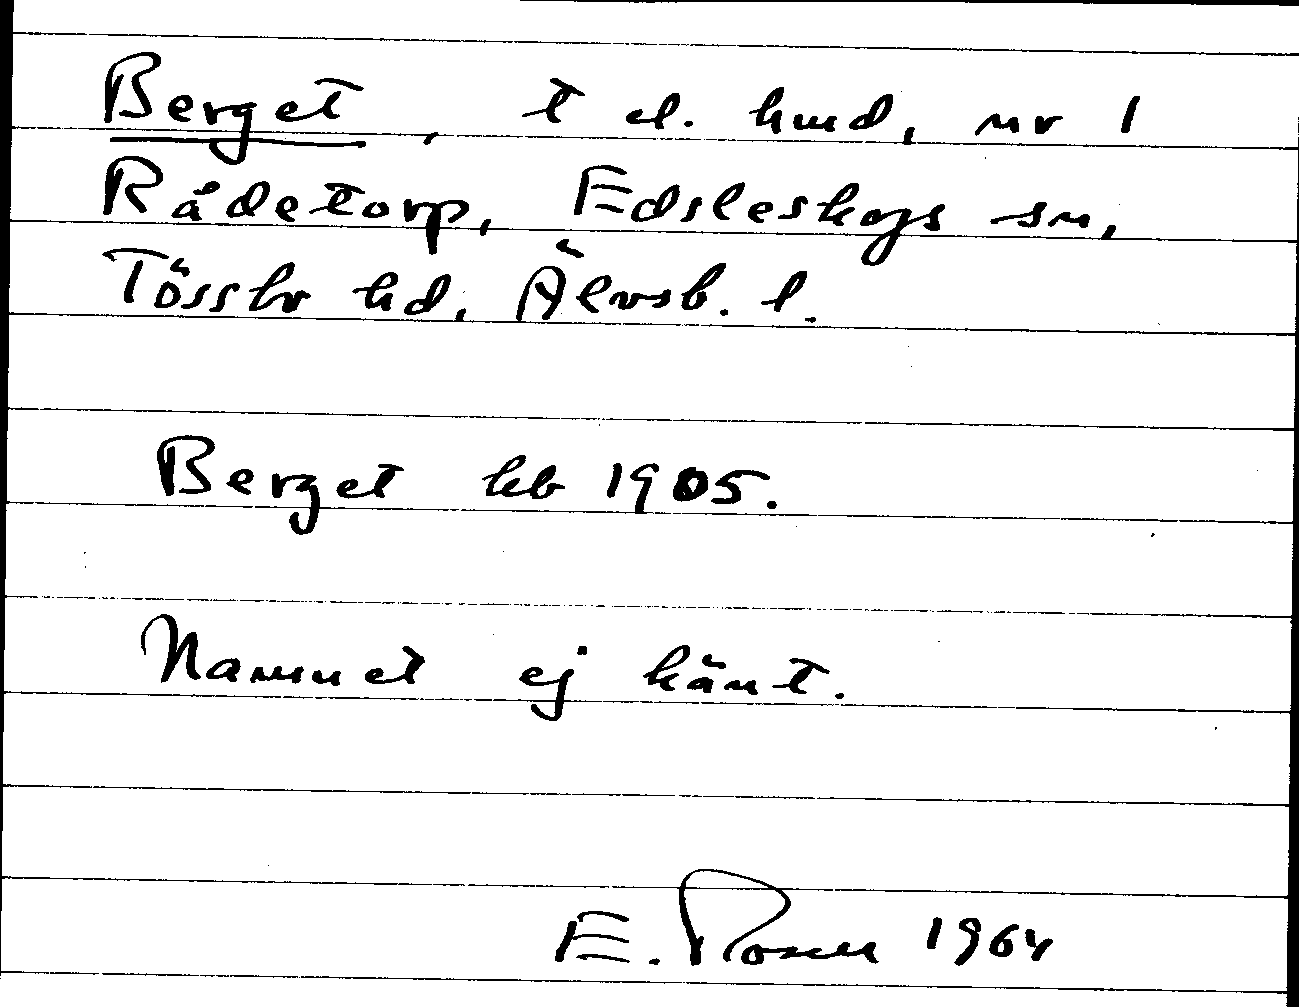 Berget, t el. hmd, nr 1
Rådetorp, Edsleskogs sn,
Tössbo hd, Älvsb. l.
Berget hb 1905.
Namnet ej känt.
E. Rosell 1964